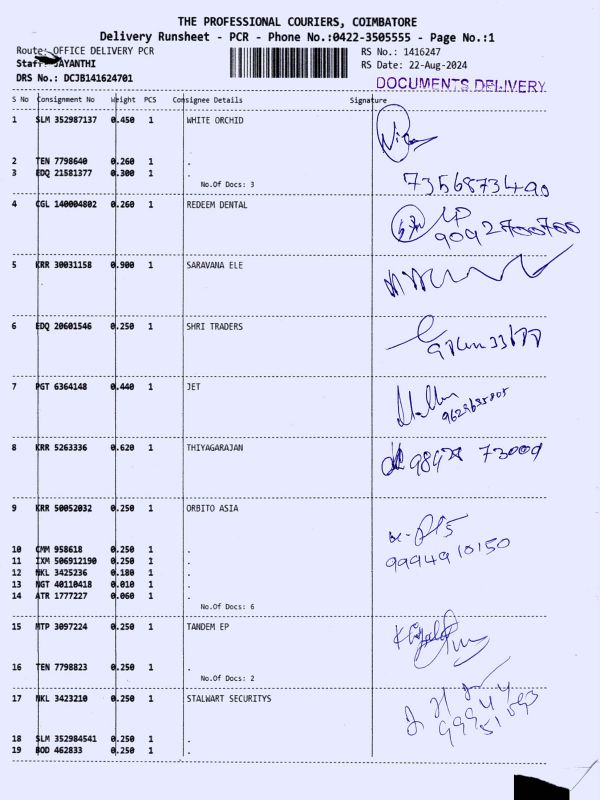 THE PROFESSIONAL COURIERS, COIMBATORE
Delivery Runsheet - PCR - Phone No.:0422-3505555 - Page No.:1
Route: OFFICE DELIVERY PCR
RS No.: 1416247
Staff: JAYANTHI
RS Date: 22-Aug-2024
DRS No.: DCJB141624701
DOCUMENTS DELIVERY
S No Consignment No Weight PCS Consignee Details Signature
1 SLM 352987137 0.450 1 WHITE ORCHID
2 TEN 7798640 0.260 1 .
3 EDQ 21581377 0.300 1 .
7356873490
No.Of Docs: 3
4 CGL 140004802 0.260 1 REDEEM DENTAL
9092700700
5 KRR 30031158 0.900 1 SARAVANA ELE
6 EDQ 20601546 0.250 1 SHRI TRADERS
7 PGT 6364148 0.440 1 JET
8 KRR 5263336 0.620 1 THIYAGARAJAN
73009
9 KRR 50052032 0.250 1 ORBITO ASIA
9994910150
10 CMM 958618 0.250 1 .
11 IXM 506912190 0.250 1 .
12 NKL 3425236 0.180 1 .
13 NGT 40110418 0.010 1 .
14 ATR 1777227 0.060 1 .
No.Of Docs: 6
15 MTP 3097224 0.250 1 TANDEM EP
16 TEN 7798823 0.250 1 .
No.Of Docs: 2
17 NKL 3423210 0.250 1 STALWART SECURITYS
18 SLM 352984541 0.250 1 .
19 BOD 462833 0.250 1 .